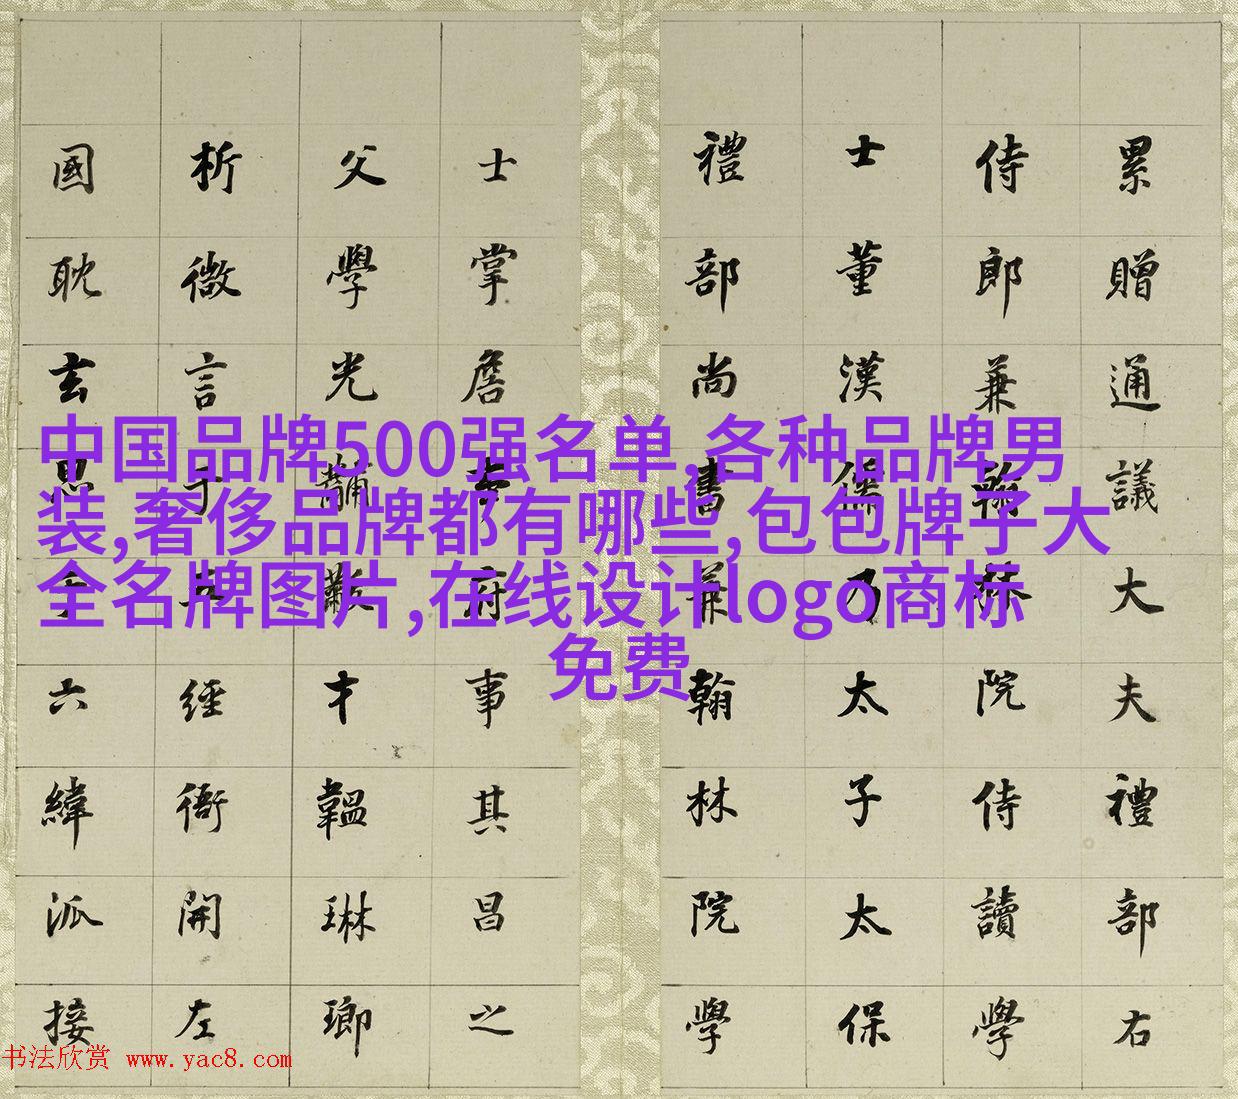 中国品牌500强名单,各种品牌男
装,奢侈品牌都有哪些,包包牌子大
全名牌图片,在线设计logo商标
免费
累贈通議大夫禮部右
侍郎兼翰林院侍讀學
士董漢乃太子太保
禮部尚書兼翰林院學
士掌詹事府事其昌之
父學光黼黻才韞琳瑯
析微言于五經衙開左
國耽玄思于六緯派接
书法欣赏 www.yac8.com